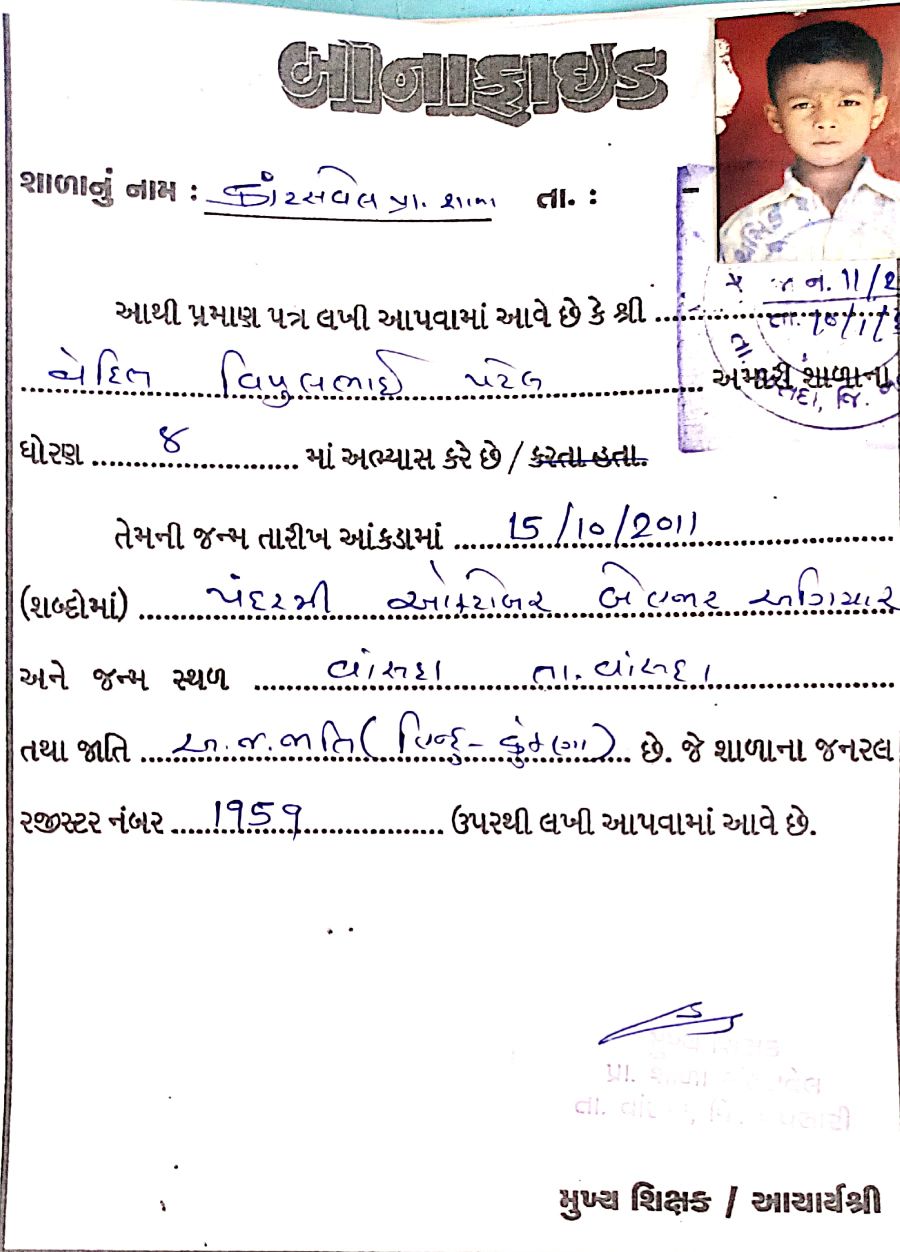 બોનાફાઇડ
શાળાનું નામ : કાંટસવેલ પ્રા. શાળા તા. : –
જ.ન. 11/2
તા. 10/1/
આથી પ્રમાણ પત્ર લખી આપવામાં આવે છે કે શ્રી ....................
.................... વિપુલભાઈ પટેલ .................... અમારી શાળાના
ધોરણ ....... ૪ ............... માં અભ્યાસ કરે છે / કરતા હતા.
તેમની જન્મ તારીખ આંકડામાં ....... 15/10/2011 ....................
(શબ્દોમાં) ....... પંદરમી ઓક્ટોબર બે હજાર અગિયાર
અને જન્મ સ્થળ ....... વાંસદા તા. વાંસદા ....................
તથા જાતિ ....... અ.જ.જાતિ (હિન્દુ - કુંકણા) ....... છે. જે શાળાના જનરલ
રજીસ્ટર નંબર ....... 1959 .................... ઉપરથી લખી આપવામાં આવે છે.
મુખ્ય શિક્ષક
પ્રા. શાળા
તા. વાંસદા, જિ. નવસારી
મુખ્ય શિક્ષક / આચાર્યશ્રી